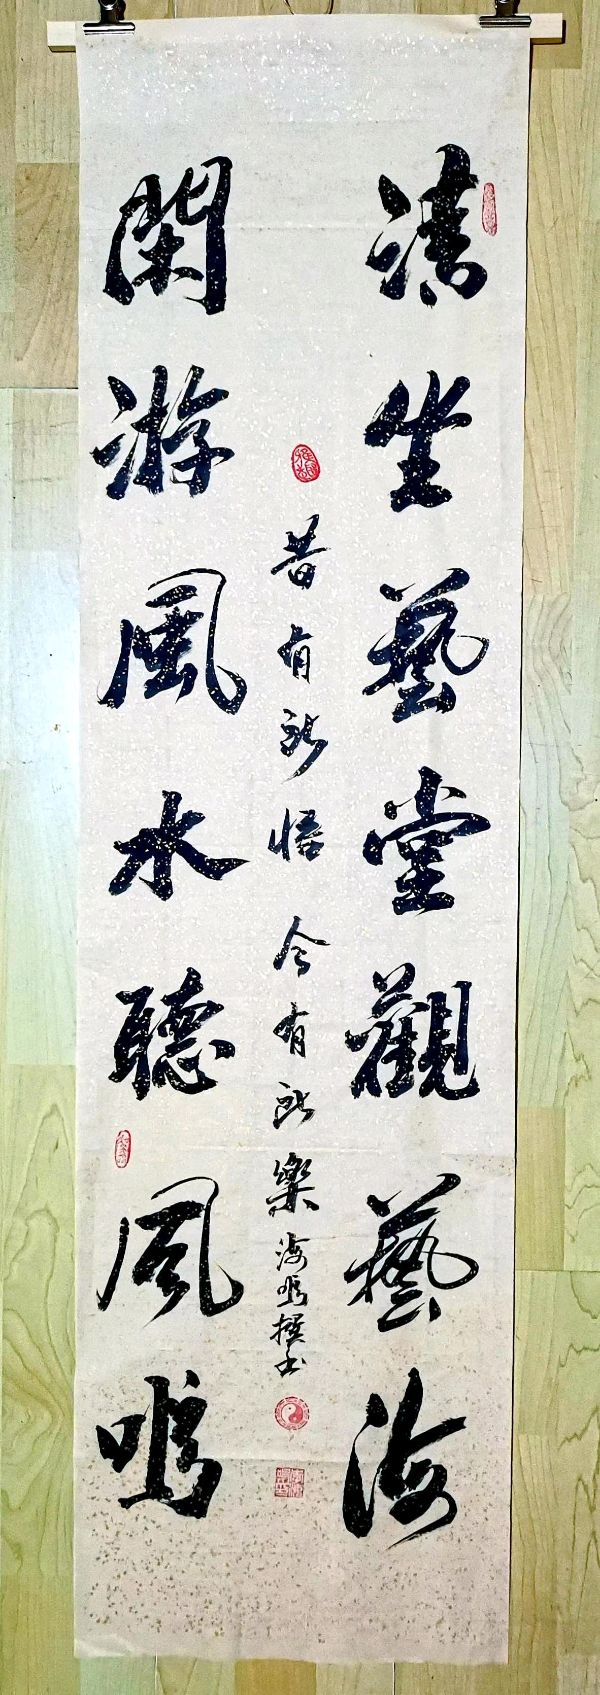 清坐藝堂觀藝海
昔有所悟今有所樂海鳴撰书
閑游風水聽風鳴